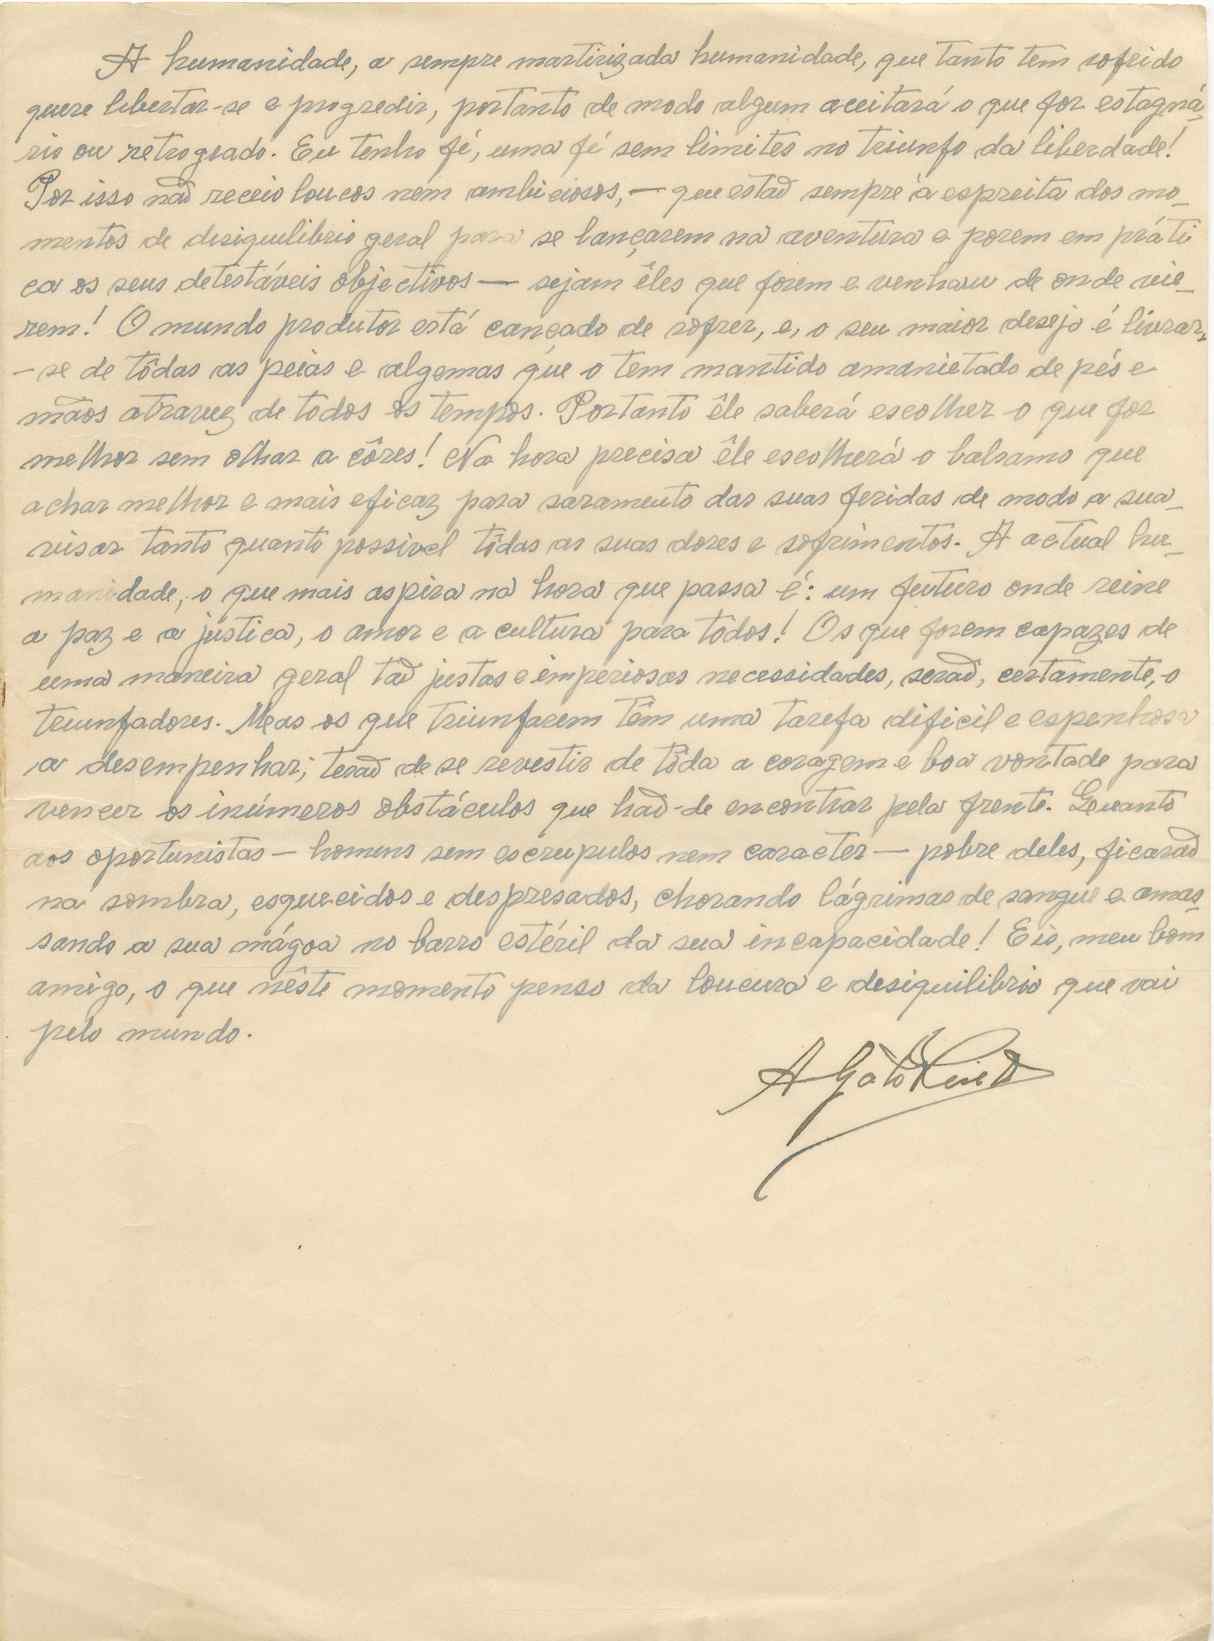 A humanidade, a sempre martirizada humanidade, que tanto tem sofrido
quere libertar-se e progredir, portanto de modo algum aceitará o que for estagná-
rio ou retrogrado. Eu tenho fé, uma fé sem limites no triunfo da liberdade!
Por isso não receio loucos nem ambiciosos, — que estão sempre à espreita dos mo-
mentos de desiquilibrio geral para se lançarem na aventura e porem em práti
ca os seus detestáveis objectivos — sejam êles que forem e venham de onde vie-
rem! O mundo produtor está cançado de sofrer, e, o seu maior desejo é livrar-
-se de tôdas as peias e algemas que o tem mantido amanietado de pés e
mãos atravez de todos os tempos. Portanto êle saberá escolher o que for
melhor sem olhar a côres! Na hora precisa êle escolherá o balsamo que
achar melhor e mais eficaz para saramento das suas feridas de modo a sua-
visar tanto quanto possivel tôdas as suas dores e sofrimentos. A actual hu-
manidade, o que mais aspira na hora que passa é: um futuro onde reine
a paz e a justica, o amor e a cultura para todos! Os que forem capazes de
uma maneira geral tão justas e imperiosas necessidades, serão, certamente, o
triunfadores. Mas os que triunfarem têm uma tarefa dificil e espenhosa
a desempenhar; terão de se revestir de tôda a coragem e boa vontade para
vencer os inúmeros obstáculos que hão-de encontrar pela frente. Quanto
aos oportunistas — homens sem escrupulos nem caracter — pobre deles, ficarão
na sombra, esquecidos e despresados, chorando lágrimas de sangue e amas-
sando a sua mágoa no barro estéril da sua incapacidade! Eis, meu bom
amigo, o que nêste momento penso da loucura e desiquilibrio que vai
pelo mundo.
A Gato